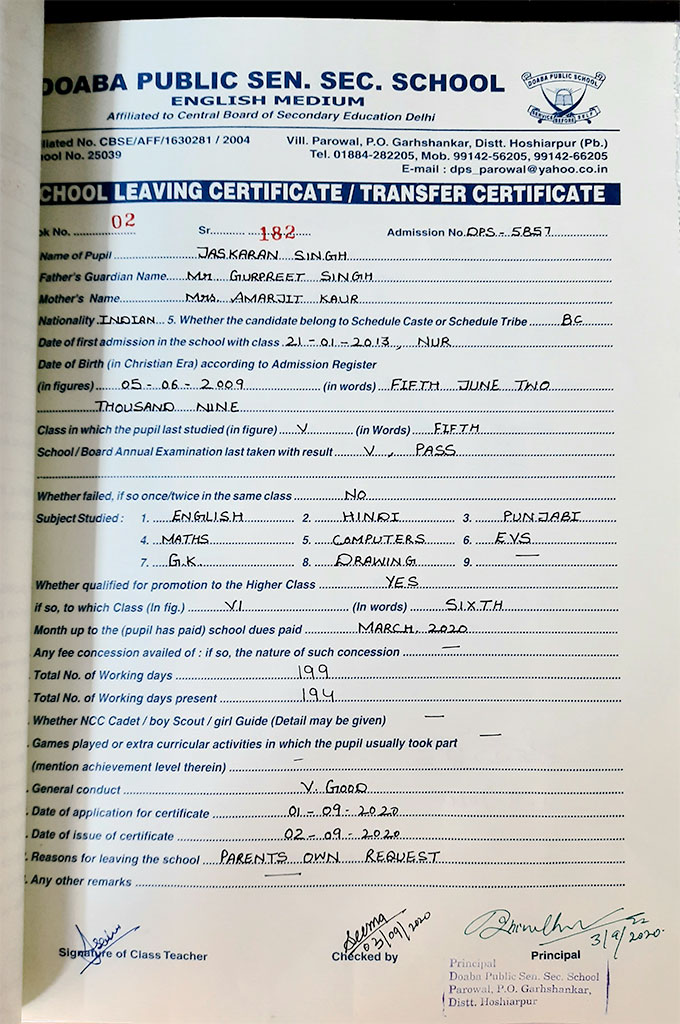 DOABA PUBLIC SEN. SEC. SCHOOL
DOABA PUBLIC SCHOOL
SERVICE BEFORE SELF
ENGLISH MEDIUM
Affiliated to Central Board of Secondary Education Delhi
iliated No. CBSE/AFF/1630281 / 2004 Vill. Parowal, P.O. Garhshankar, Distt. Hoshiarpur (Pb.)
ool No. 25039 Tel. 01884-282205, Mob. 99142-56205, 99142-66205
E-mail : dps_parowal@yahoo.co.in
CHOOL LEAVING CERTIFICATE / TRANSFER CERTIFICATE
ok No. 02 Sr. 182 Admission No. DPS - 5857
Name of Pupil JASKARAN SINGH
Father's Guardian Name Mr GURPREET SINGH
Mother's Name Mrs. AMARJIT KAUR
Nationality INDIAN 5. Whether the candidate belong to Schedule Caste or Schedule Tribe BC
Date of first admission in the school with class 21 - 01 - 2013, NUR
Date of Birth (in Christian Era) according to Admission Register
(in figures) 05 - 06 - 2009 (in words) FIFTH JUNE TWO
THOUSAND NINE
Class in which the pupil last studied (in figure) V (in Words) FIFTH
School / Board Annual Examination last taken with result V , PASS
Whether failed, if so once/twice in the same class NO
Subject Studied : 1. ENGLISH 2. HINDI 3. PUNJABI
4. MATHS 5. COMPUTERS 6. EVS
7. G.K. 8. DRAWING 9. —
Whether qualified for promotion to the Higher Class YES
if so, to which Class (In fig.) VI (In words) SIXTH
Month up to the (pupil has paid) school dues paid MARCH, 2020
Any fee concession availed of : if so, the nature of such concession —
Total No. of Working days 199
Total No. of Working days present 194
Whether NCC Cadet / boy Scout / girl Guide (Detail may be given) —
Games played or extra curricular activities in which the pupil usually took part —
(mention achievement level therein) -
General conduct V. GOOD
Date of application for certificate 01 - 09 - 2020
Date of issue of certificate 02 - 09 - 2020
Reasons for leaving the school PARENTS OWN REQUEST
Any other remarks —
Seema
03/09/2020
3/9/2020
Signature of Class Teacher Checked by Principal
Principal
Doaba Public Sen. Sec. School
Parowal, P.O. Garhshankar,
Distt. Hoshiarpur